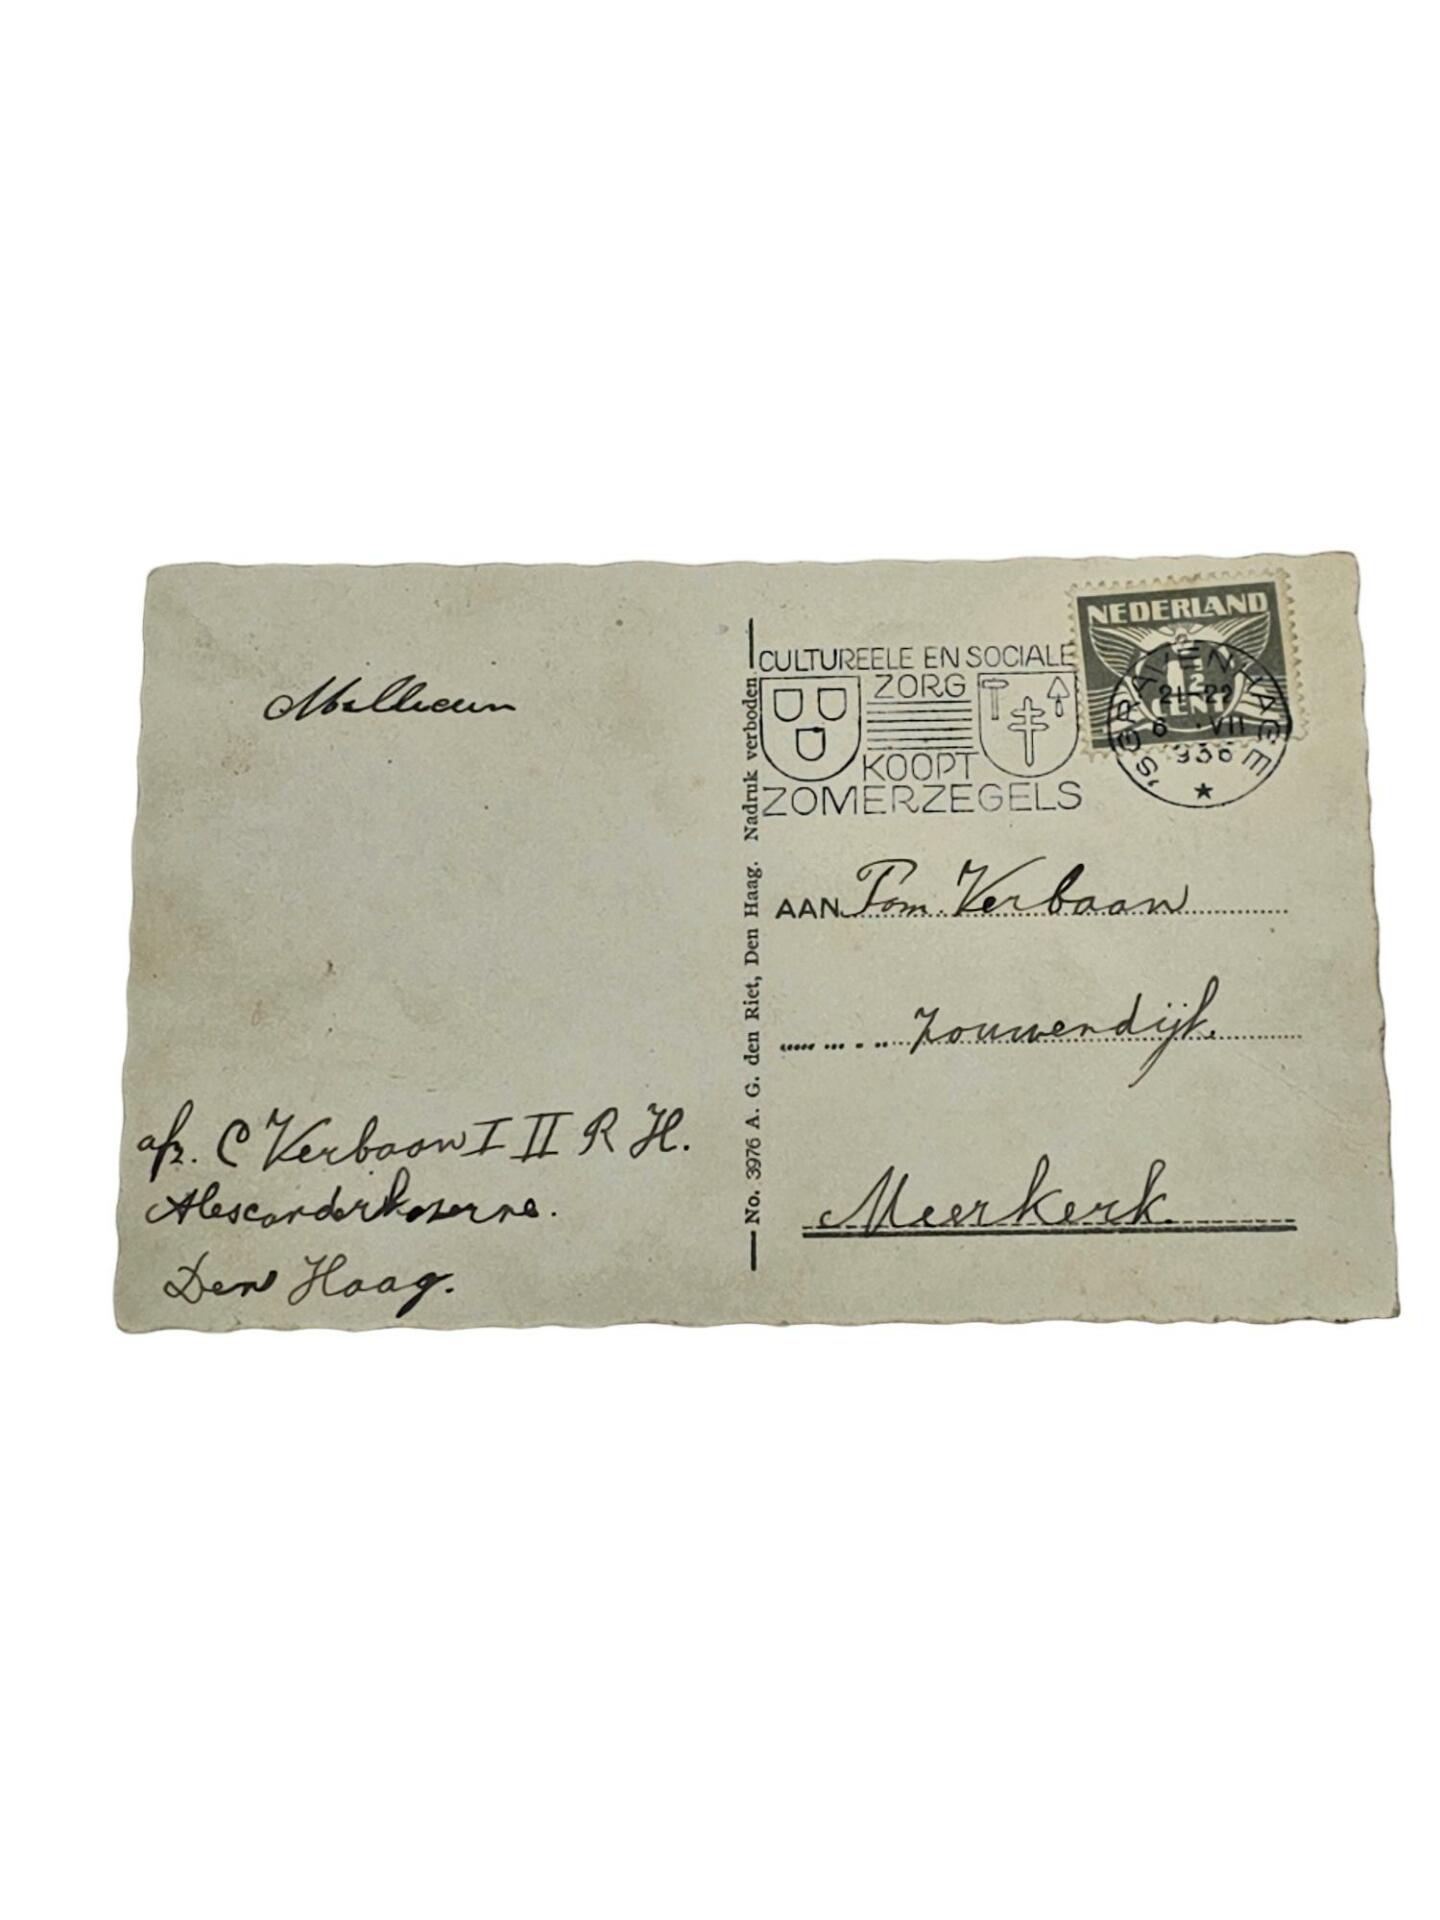 NEDERLAND
1½
CENT
CULTUREELE EN SOCIALE
ZORG
KOOPT
ZOMERZEGELS
'SGRAVENHAGE
21-22
6 VII
1936
No. 3976 A. G. den Riet, Den Haag. Nadruk verboden
AAN Fam. Verbaan
Zouwendijk.
Meerkerk.
afz. C Verbaan I II R H.
Alexanderkazerne.
Den Haag.